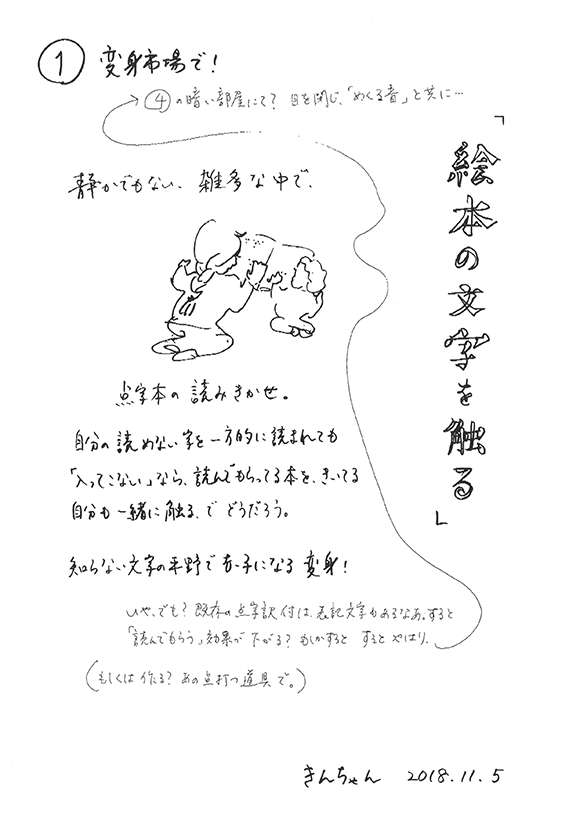 ① 変身市場で!
→④の暗い部屋にて? 目を閉じ、「めくる音」と共に…
「絵本の文字を触る」
静かでもない、雑多な中で、
点字本の読みきかせ。
自分の読めない字を一方的に読まれても
「入ってこない」なら、読んでもらってる本を、きいてる
自分も一緒に触る、でどうだろう。
知らない文字の平野で赤子になる変身!
いや、でも? 既存の点字訳付は、表記文字もあるなあ。すると
「読んでもらう」効果が下がる? もしかすると するとやはり、
(もしくは作る? あの点打つ道具で。)
きんちゃん 2018.11.5